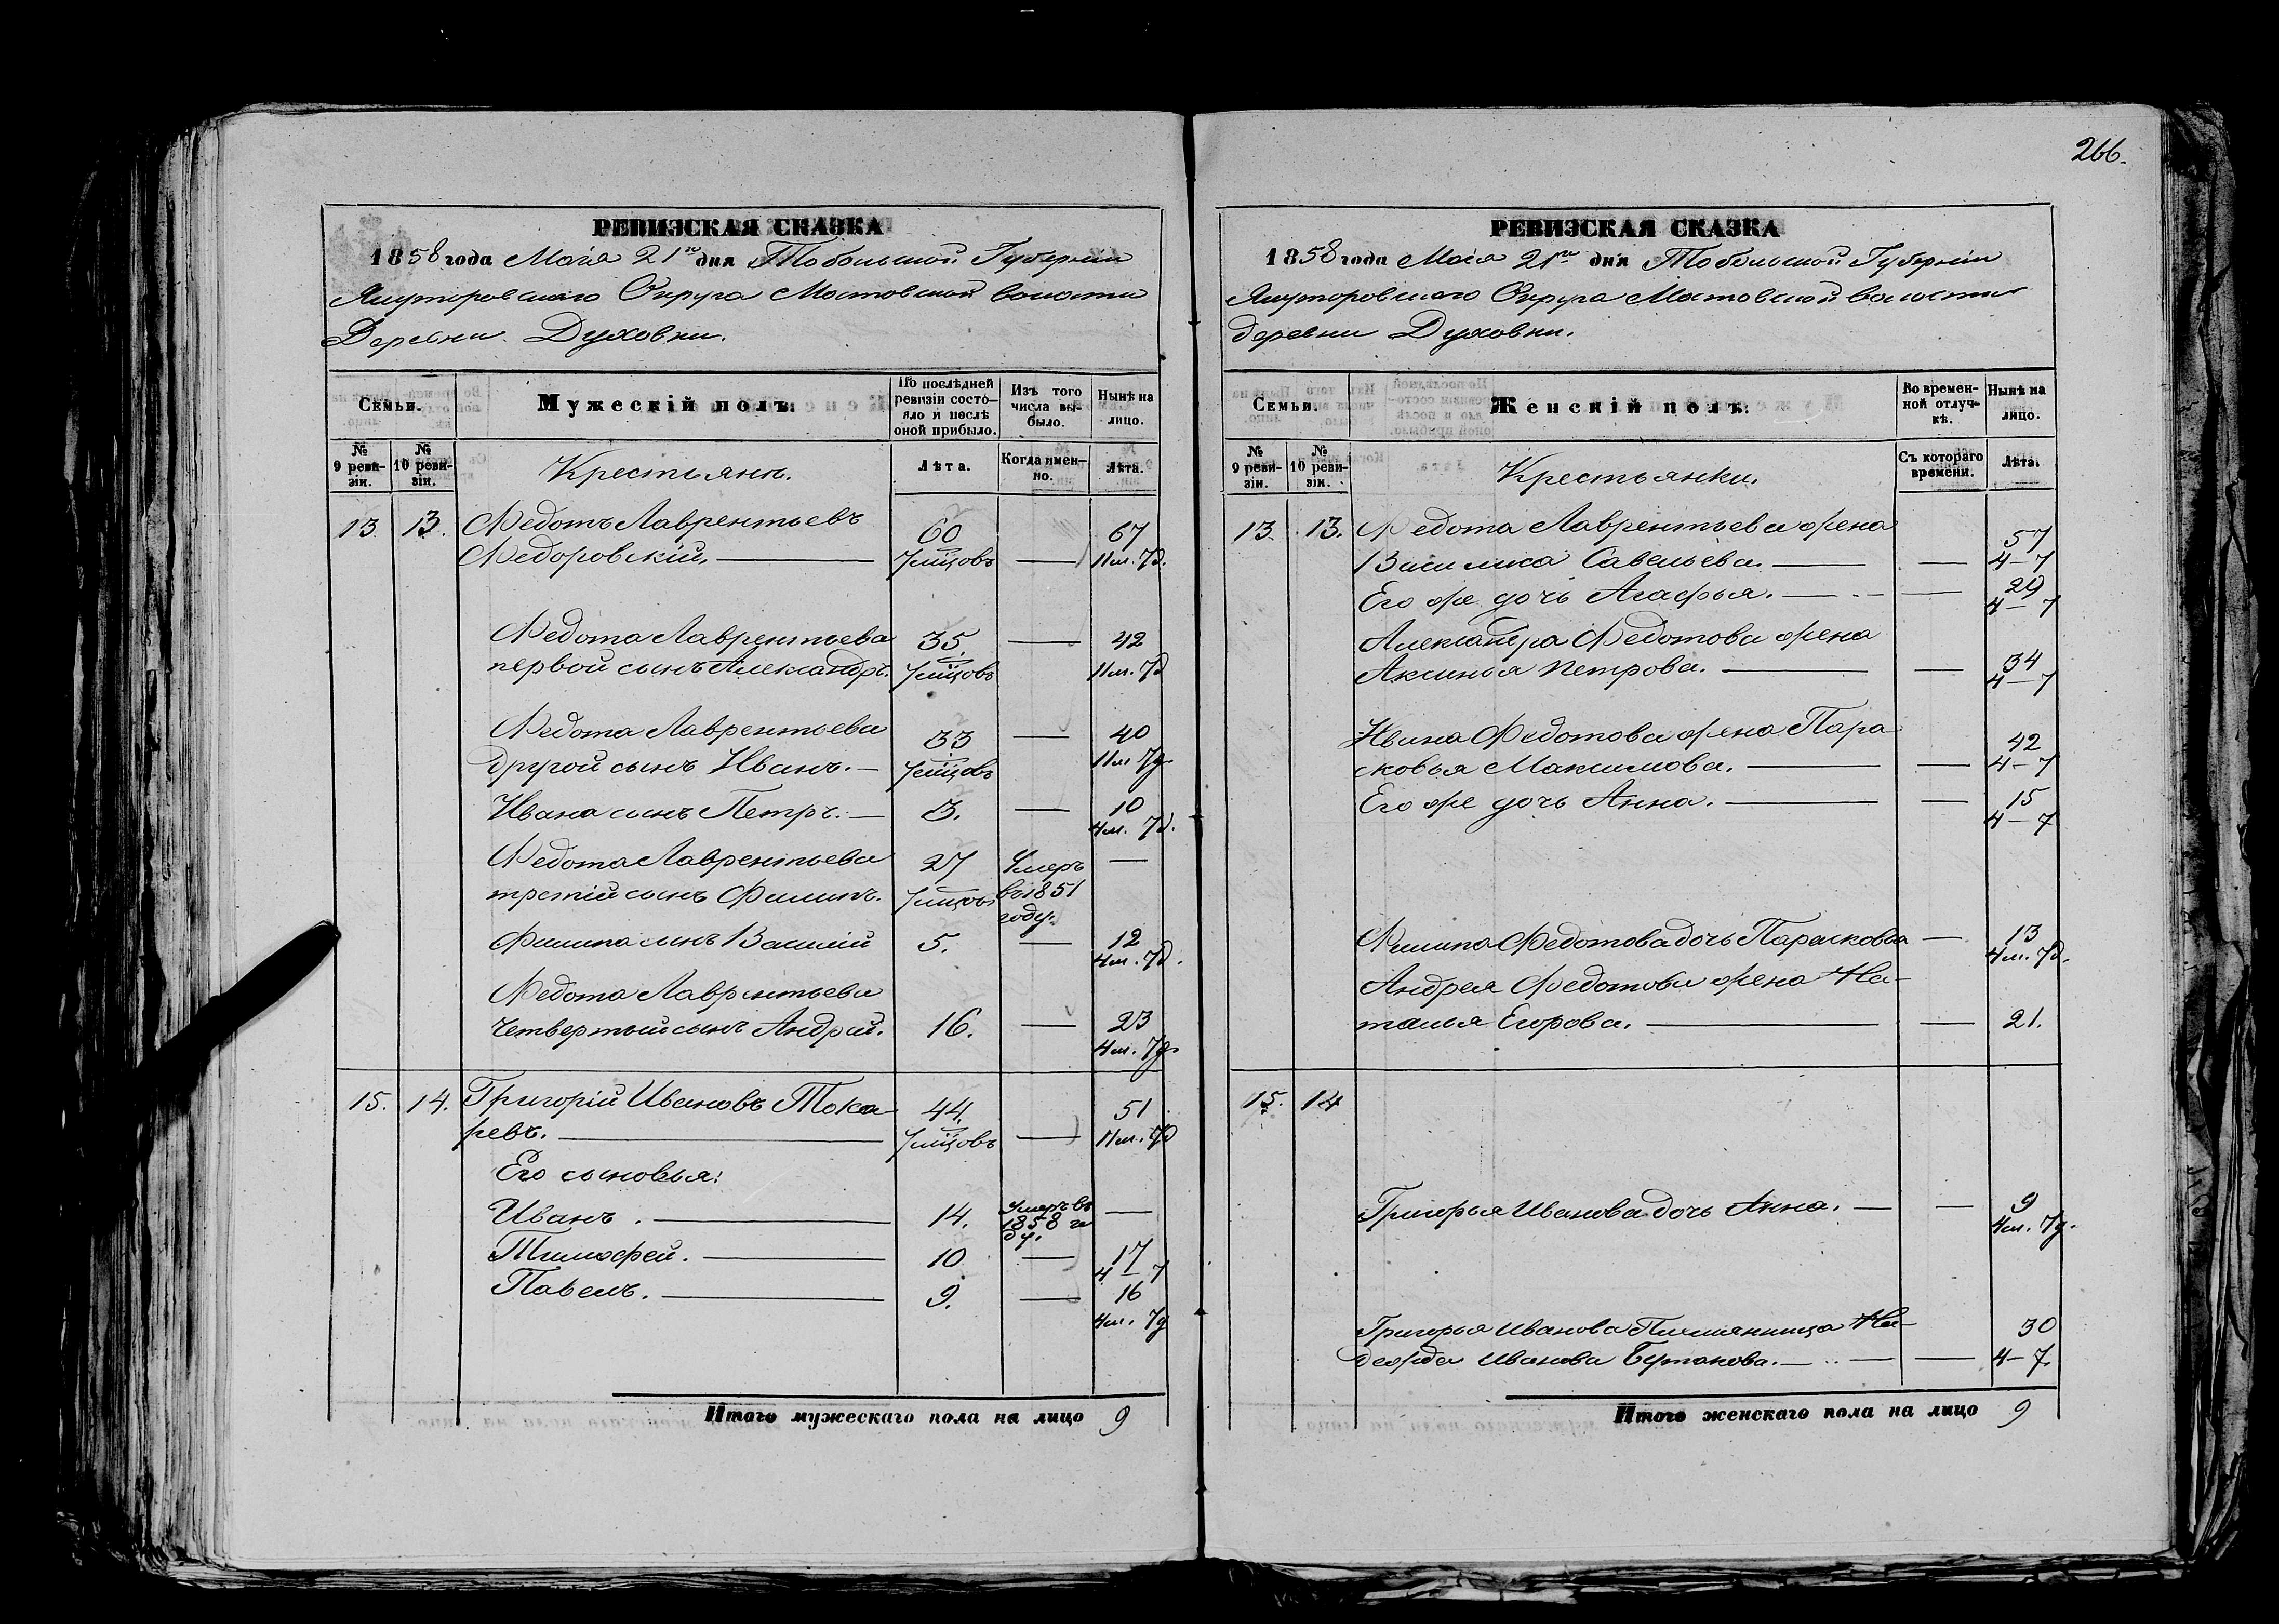 266.
РЕВИЗСКАЯ СКАЗКА
1858 года Мая 21го дня Тобольской Губерніи
Ялуторовскаго Округа Мостовской волости
Деревни Духовки.
Семьи.
Мужескій полъ.
По послѣдней ревизіи состо-
яло и послѣ
оной прибыло.
Изъ того
числа вы-
было.
Нынѣ на
лицо.
№
9 реви-
зіи.
№
10 реви-
зіи.
Крестьянъ.
Лѣта.
Когда имен-
но.
Лѣта.
13. 13. Федотъ Лаврентьевъ 60 67
Федоровскій. — 7мцовъ — 11м. 7д.
Федота Лаврентьева 35. — 42
первой сынъ Александръ. 7мцовъ 11м. 7д
Федота Лаврентьева 33 — 40
другой сынъ Иванъ. — 7мцовъ 11м 7д.
Ивана сынъ Петръ. — 3. — 10
4м. 7д.
Федота Лаврентьева 27 Умеръ —
третій сынъ Филипъ. 7мцовъ въ 1851
году.
Филипа сынъ Василій 5. — 12
4м. 7д.
Федота Лаврентьева
четвертый сынъ Андрей. 16. — 23
4м. 7д.
15. 14. Григорій Ивановъ Тока- 44. 51
ревъ. — 7мцовъ — 11м. 7д
Его сыновья:
Иванъ. — 14. Умеръ въ —
1858 го
ду.
Тимофей. — 10 — 17
4 — 7
Павелъ. — 9. — 16
4м. 7д
Итого мужескаго пола на лицо 9
РЕВИЗСКАЯ СКАЗКА
1858 года Мая 21го дня Тобольской Губерніи
Ялуторовскаго Округа Мостовской волости
деревни Духовки.
Семьи.
Женскій полъ.
Во времен-
ной отлуч-
кѣ.
Нынѣ на
лицо.
№
9 реви-
зіи.
№
10 реви-
зіи.
Крестьянки.
Съ котораго
времени.
Лѣта.
13. 13. Федота Лаврентьева жена
57
Василиса Савельева. — — 4 — 7
Его же дочь Агафья. — — 29
4 — 7
Александра Федотова жена
Аксинья Петрова. — — 34
4 — 7
Ивана Федотова жена Пара-
42
сковья Максимова. — — 4 — 7
Его же дочь Анна. — — 15
4 — 7
Филипа Федотова дочь Парасковья — 13
4м. 7д.
Андрея Федотова жена На-
талья Егорова. — — 21.
15. 14
Григорья Иванова дочь Анна. — — 9
4м. 7д.
Григорья Иванова Племянница На- 30
дежда Иванова — — 4 — 7.
Итого женскаго пола на лицо 9